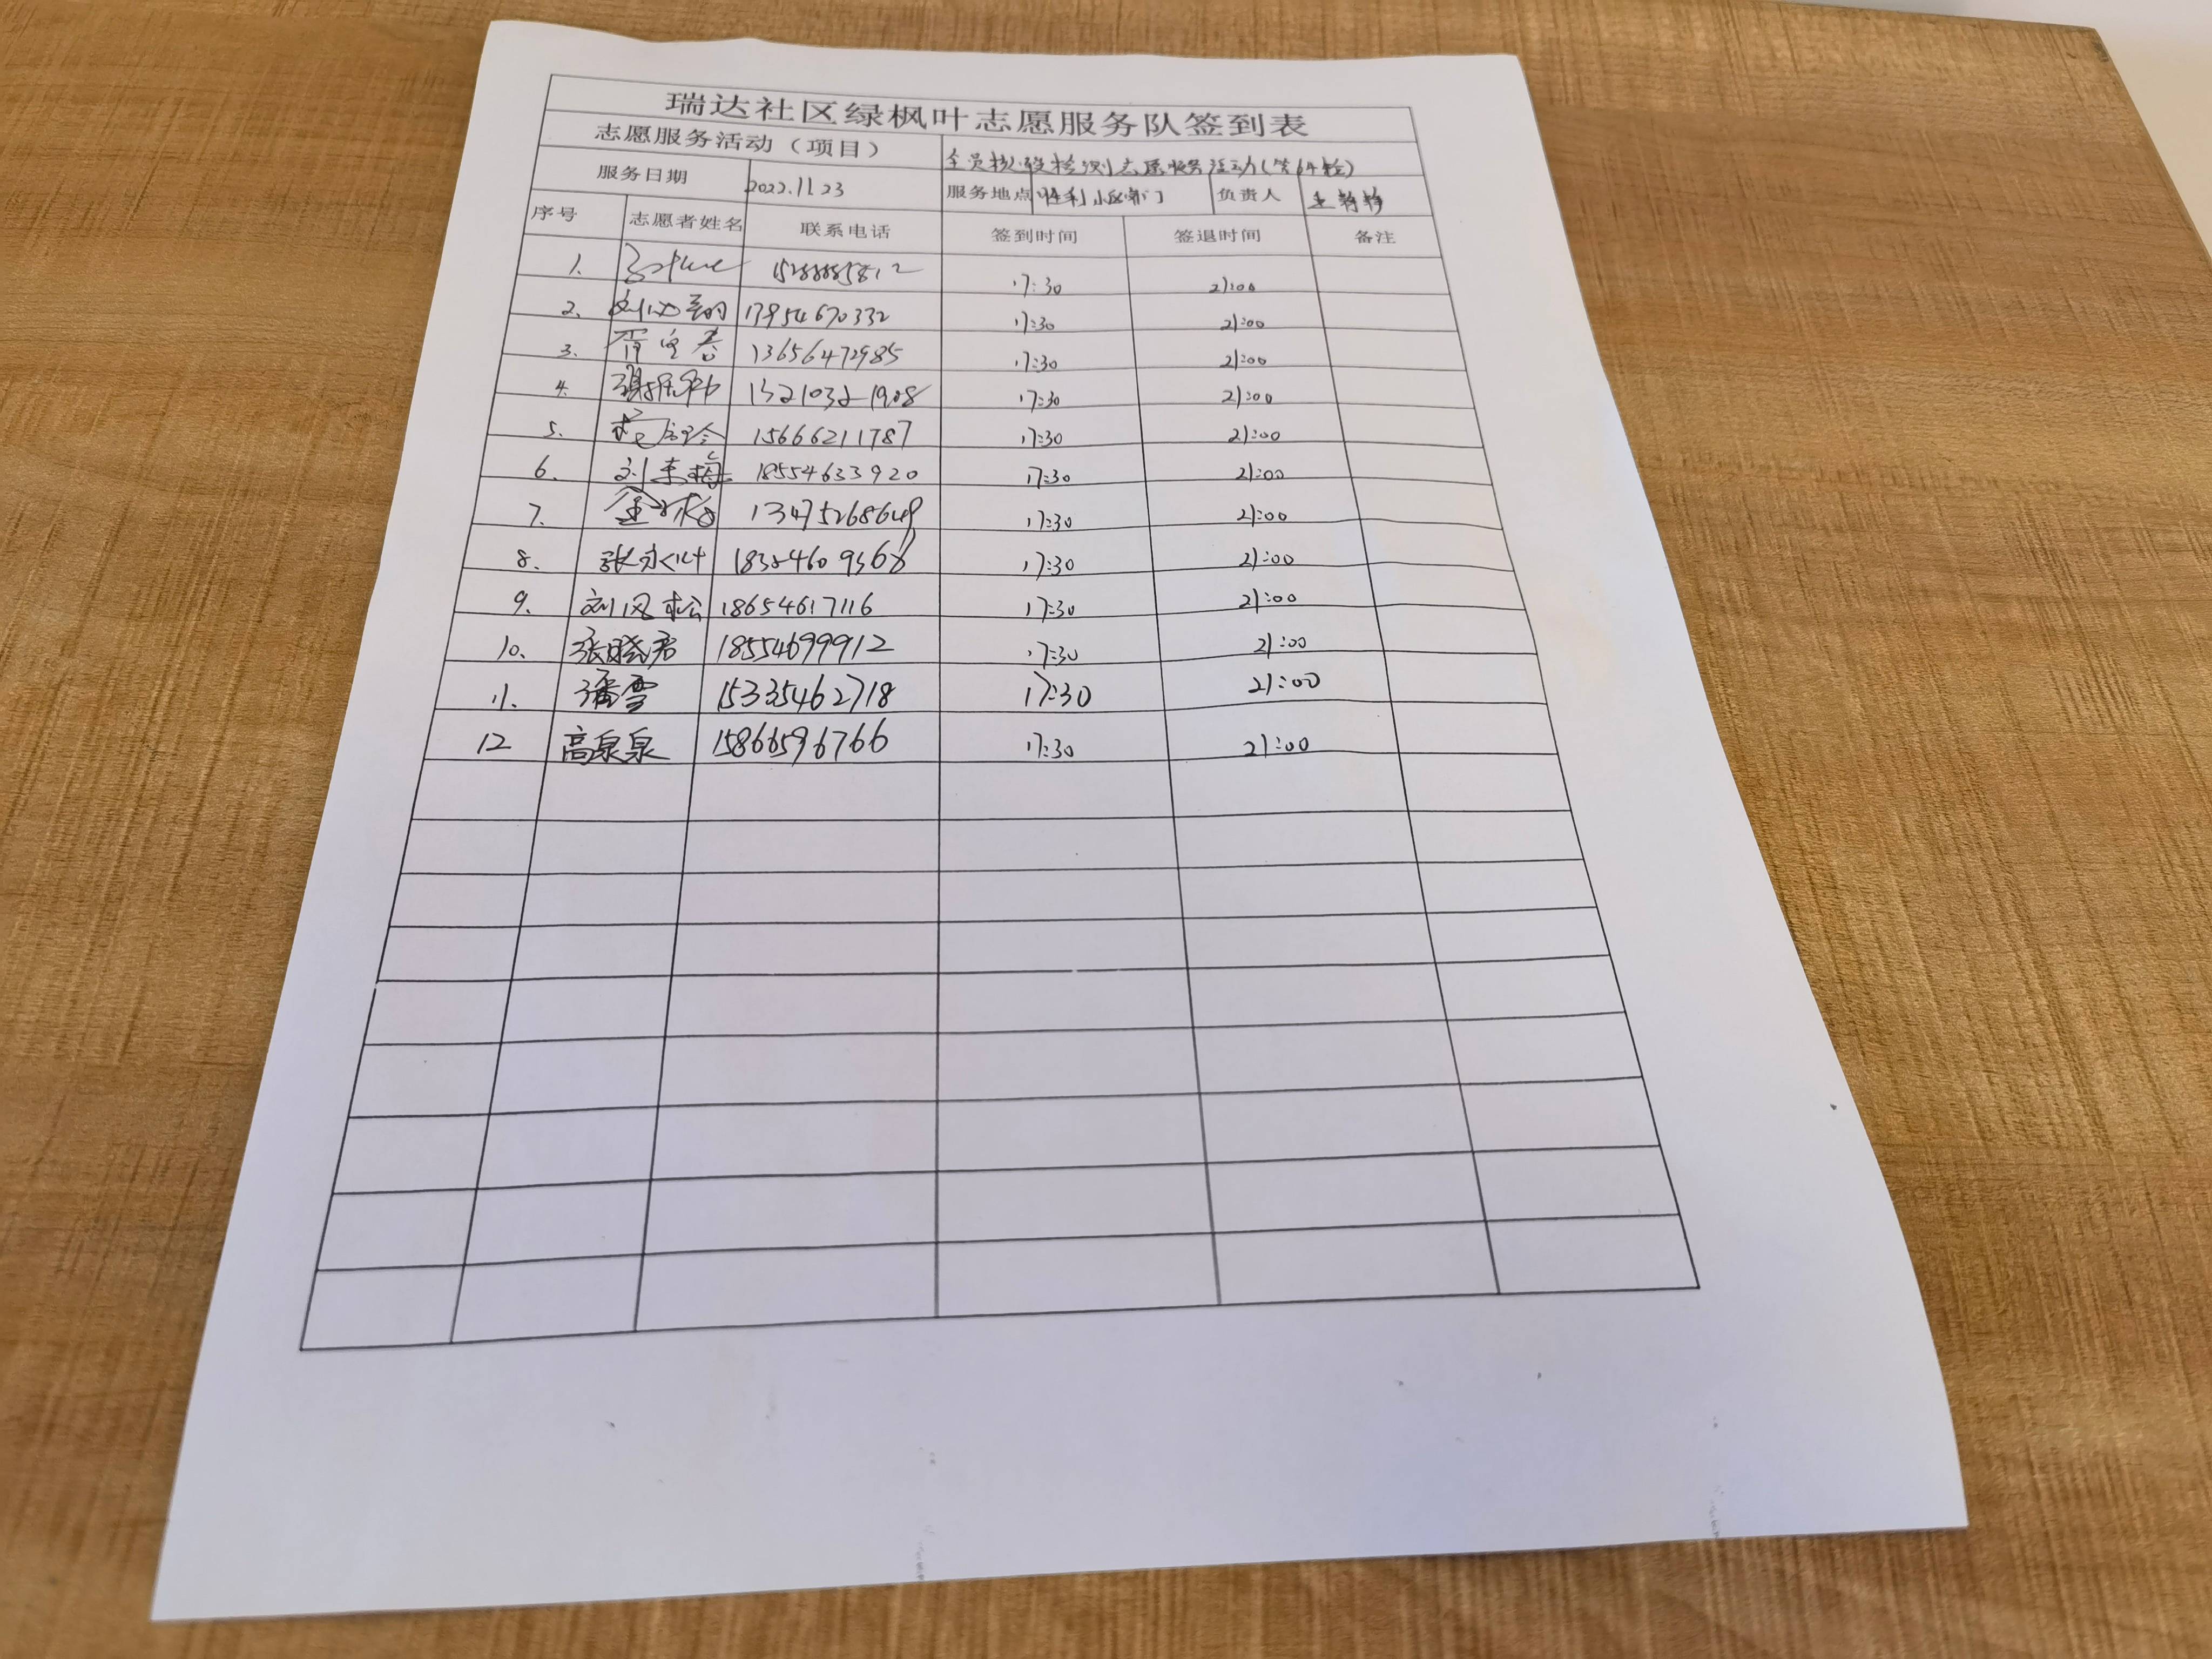 瑞达社区绿枫叶志愿服务队签到表
志愿服务活动（项目） 全员核酸检测志愿服务活动(第64轮)
服务日期 2022.11.23 服务地点 胜利小区南门 负责人 王静静
序号 志愿者姓名 联系电话 签到时间 签退时间 备注
1. 17:30 21:00
2. 13954670332 17:30 21:00
3. 13656472985 17:30 21:00
4. 17:30 21:00
5. 15666211787 17:30 21:00
6. 刘来梅 18554633920 17:30 21:00
7. 13475268649 17:30 21:00
8. 张永叶 17:30 21:00
9. 刘风松 18654617116 17:30 21:00
10. 张晓君 18554699912 17:30 21:00
11. 潘雪 15335462718 17:30 21:00
12 高泉泉 15866596766 17:30 21:00